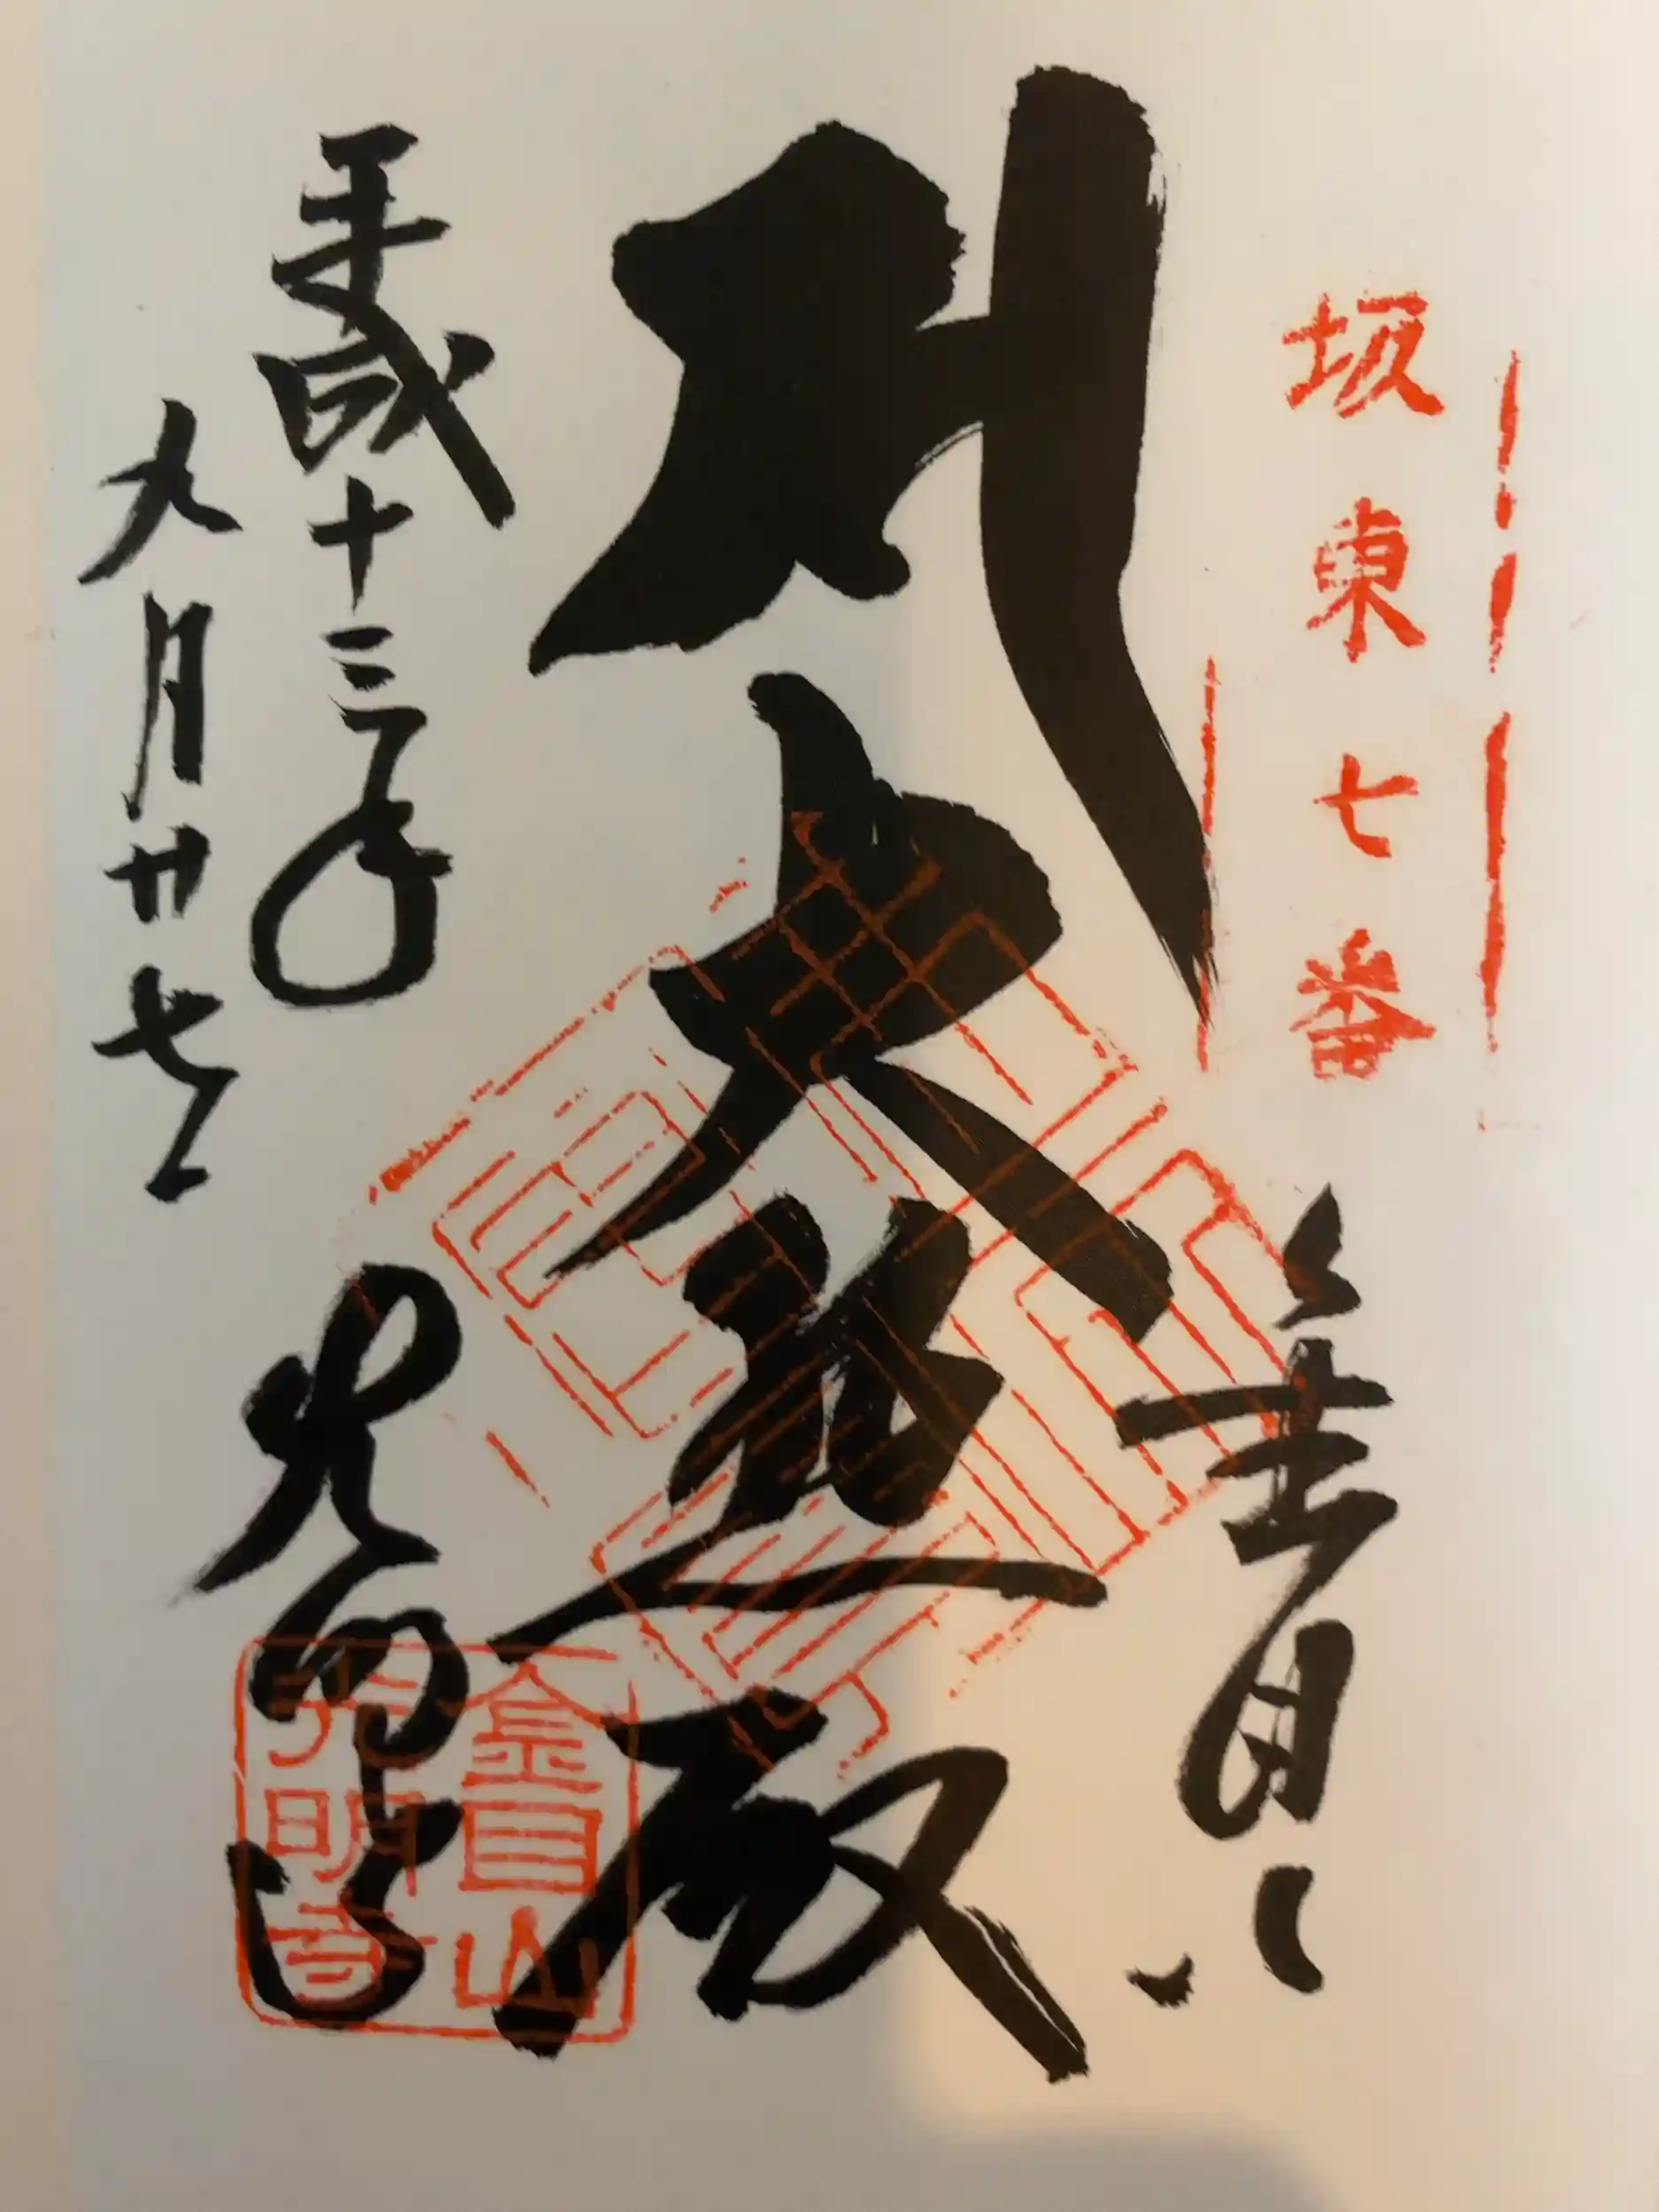 坂東七番
大悲殿
平成十三年
九月廿七日
光明寺
金目山
光明寺